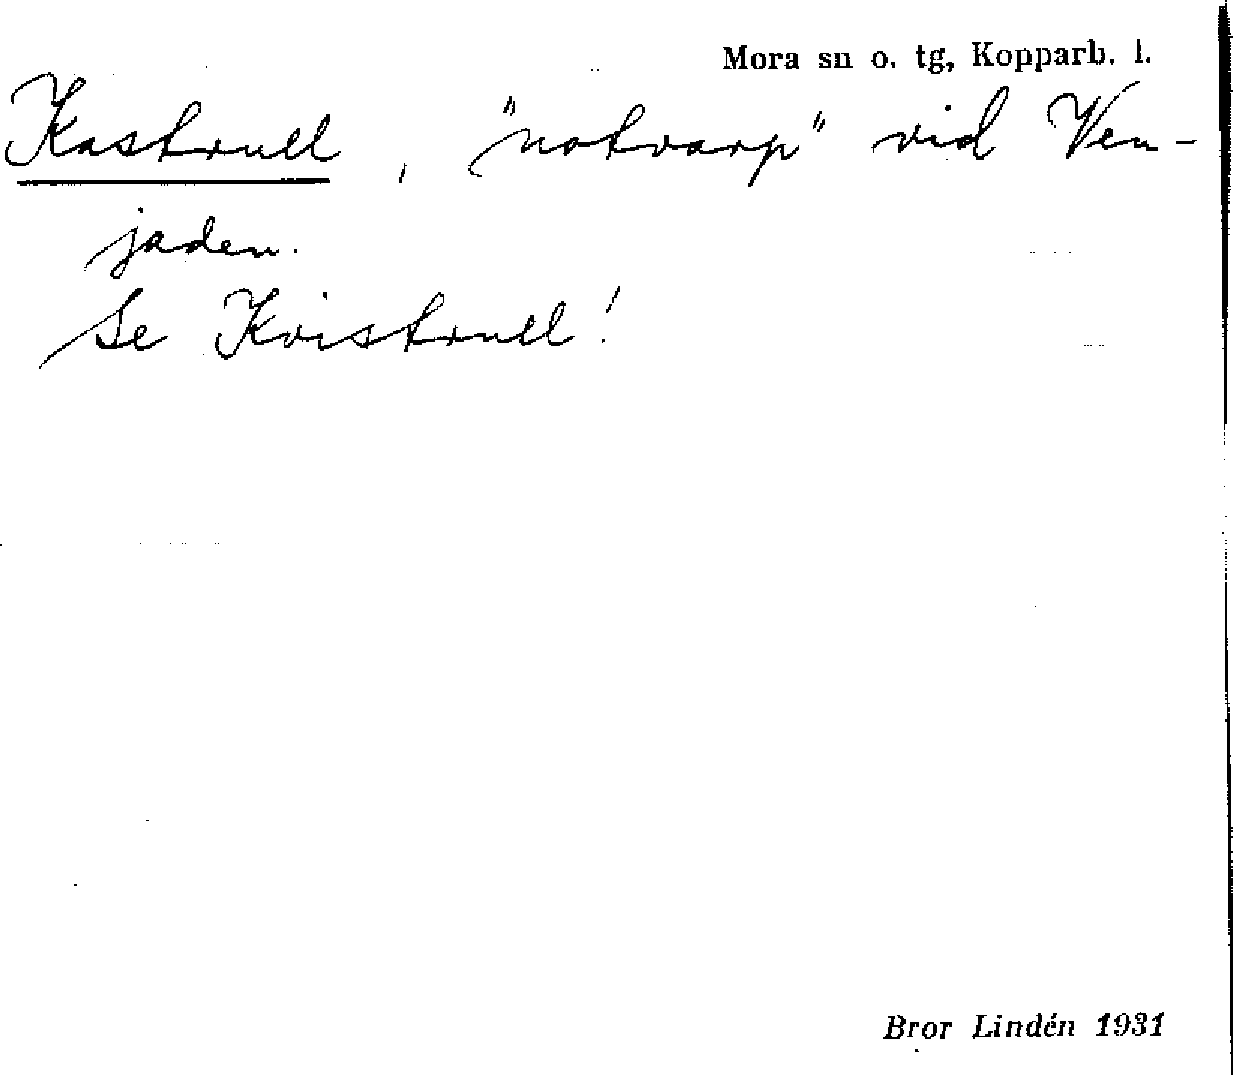 Mora sn o. tg, Kopparb. l.
Kastrull, "notvarp" vid Ven-
jaden.
Se Kvistrull!
Bror Lindén 1931